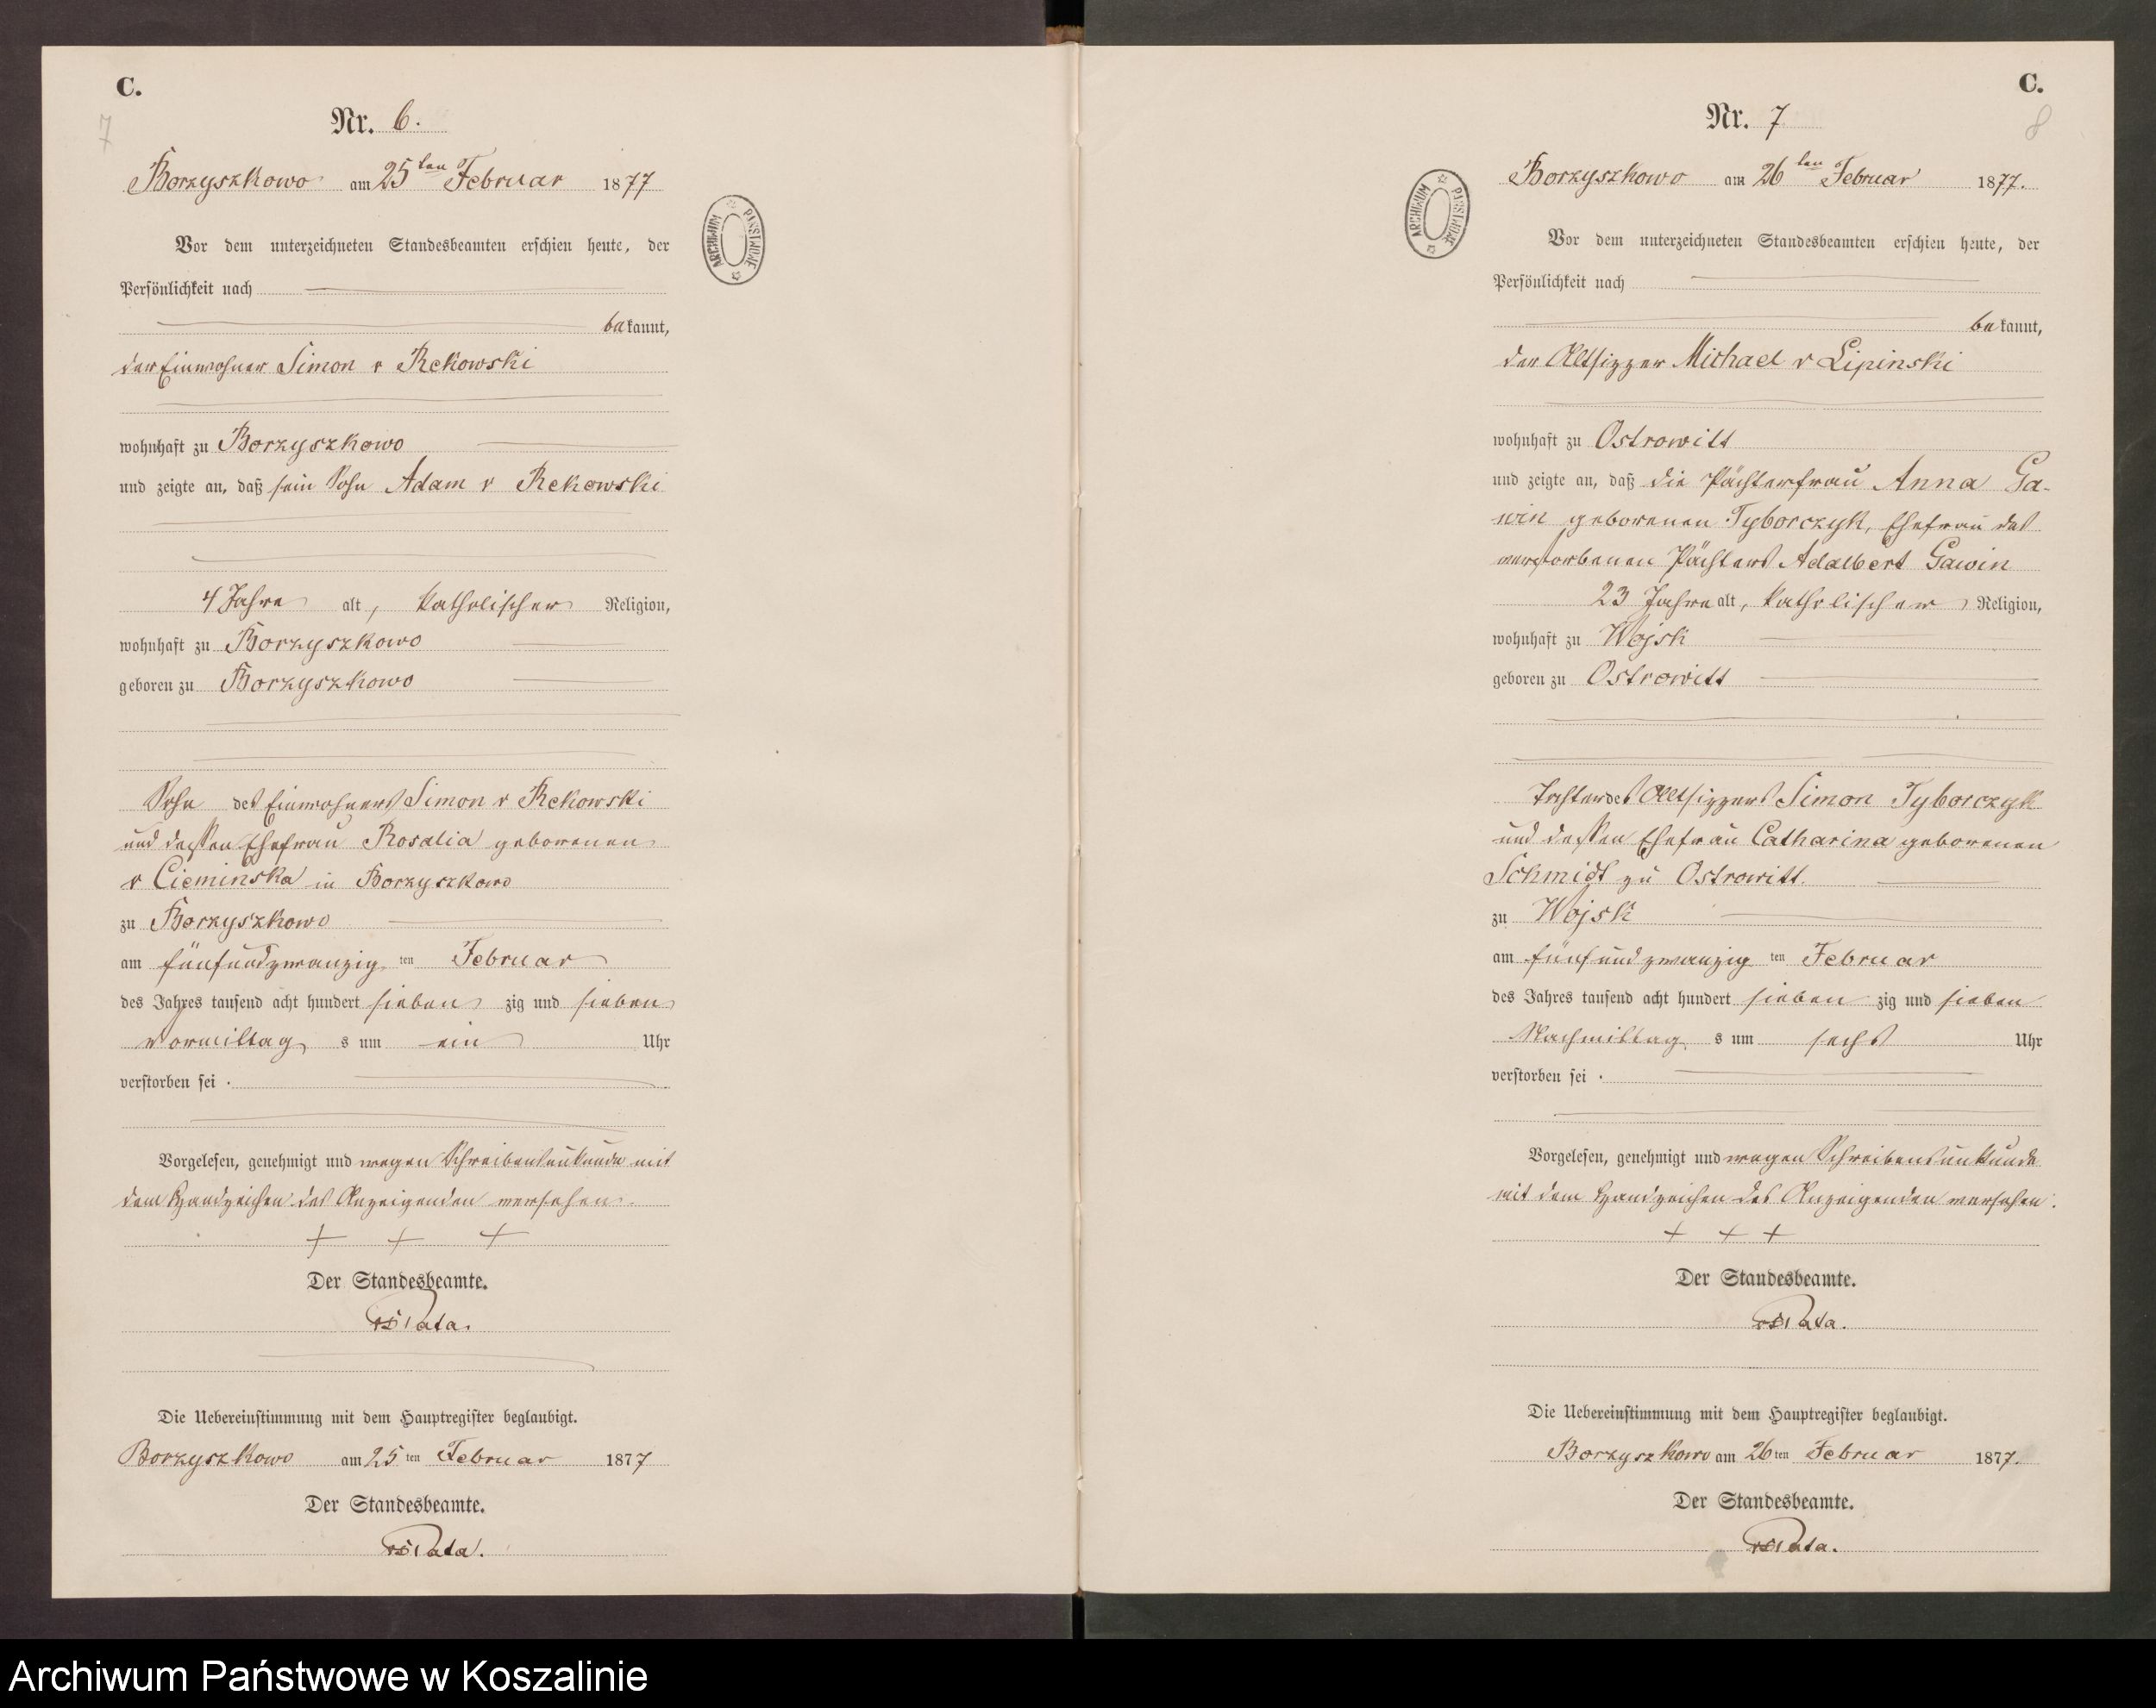 C.
7
Nr. 6.
Borzyszkowo am 25ten Februar 1877
Vor dem unterzeichneten Standesbeamten erschien heute, der
Persönlichkeit nach
bekannt,
der Einwohner Simon v Rekowski
wohnhaft zu Borzyszkowo
und zeigte an, daß sein Sohn Adam v Rekowski
4 Jahre alt, katholischer Religion,
wohnhaft zu Borzyszkowo
geboren zu Borzyszkowo
Sohn des Einwohners Simon v Rekowski
und dessen Ehefrau Rosalia geborenen
v Cieminska in Borzyszkowo
zu Borzyszkowo
am fünfundzwanzig ten Februar
des Jahres tausend acht hundert sieben zig und sieben
Vormittag s um ein Uhr
verstorben sei.
Vorgelesen, genehmigt und wegen Schreibensunkunde mit
dem Handzeichen des Anzeigenden versehen.
+ + +
Der Standesbeamte.
Die Uebereinstimmung mit dem Hauptregister beglaubigt.
Borzyszkowo am 25 ten Februar 1877
Der Standesbeamte.
ARCHIWUM PAŃSTWOWE
C.
8
Nr. 7
Borzyszkowo am 26ten Februar 1877.
Vor dem unterzeichneten Standesbeamten erschien heute, der
Persönlichkeit nach
bekannt,
der Altsitzer Michael v Lipinski
wohnhaft zu Ostrowitt
und zeigte an, daß die Pächterfrau Anna Ga-
win geborenen Tyborczyk, Ehefrau des
verstorbenen Pächters Adalbert Gawin
23 Jahre alt, katholischer Religion,
wohnhaft zu Wojsk
geboren zu Ostrowitt
Tochter des Altsitzers Simon Tyborczyk
und dessen Ehefrau Catharina geborenen
Schmidt zu Ostrowitt.
zu Wojsk
am fünfundzwanzig ten Februar
des Jahres tausend acht hundert sieben zig und sieben
Nachmittag s um sechs Uhr
verstorben sei.
Vorgelesen, genehmigt und wegen Schreibensunkunde
mit dem Handzeichen des Anzeigenden versehen.
+ + +
Der Standesbeamte.
Die Uebereinstimmung mit dem Hauptregister beglaubigt.
Borzyszkowo am 26 ten Februar 1877.
Der Standesbeamte.
ARCHIWUM PAŃSTWOWE
Archiwum Państwowe w Koszalinie